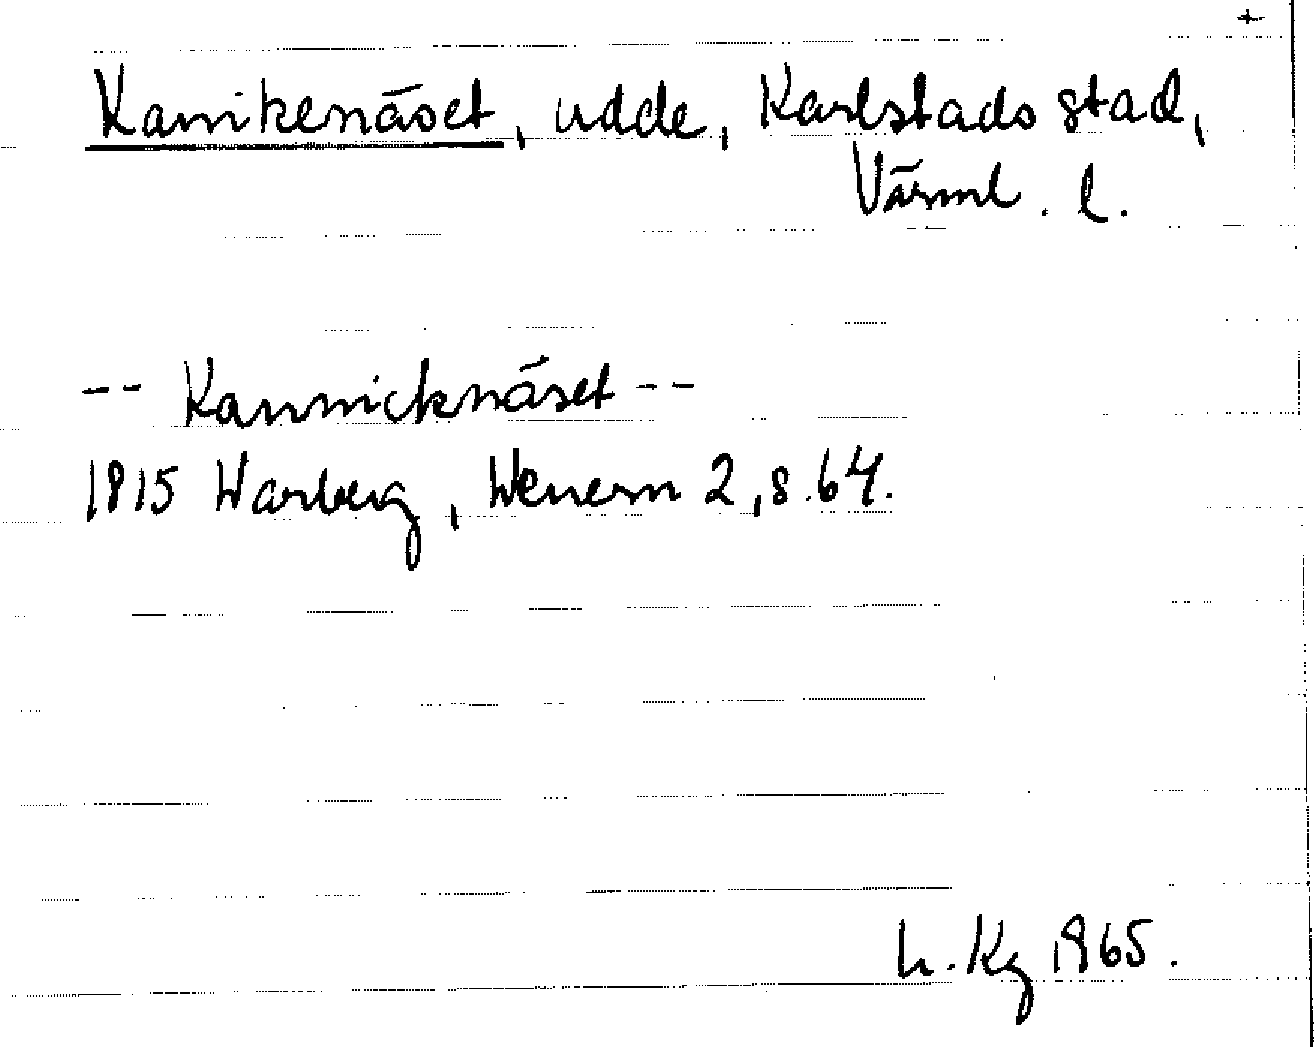 +
Kanikenäset, udde, Karlstads stad,
Värml. l.
-- Kannicknäset --
1815 Warberg, Wenern 2, s. 64.
L. Kg 1965.